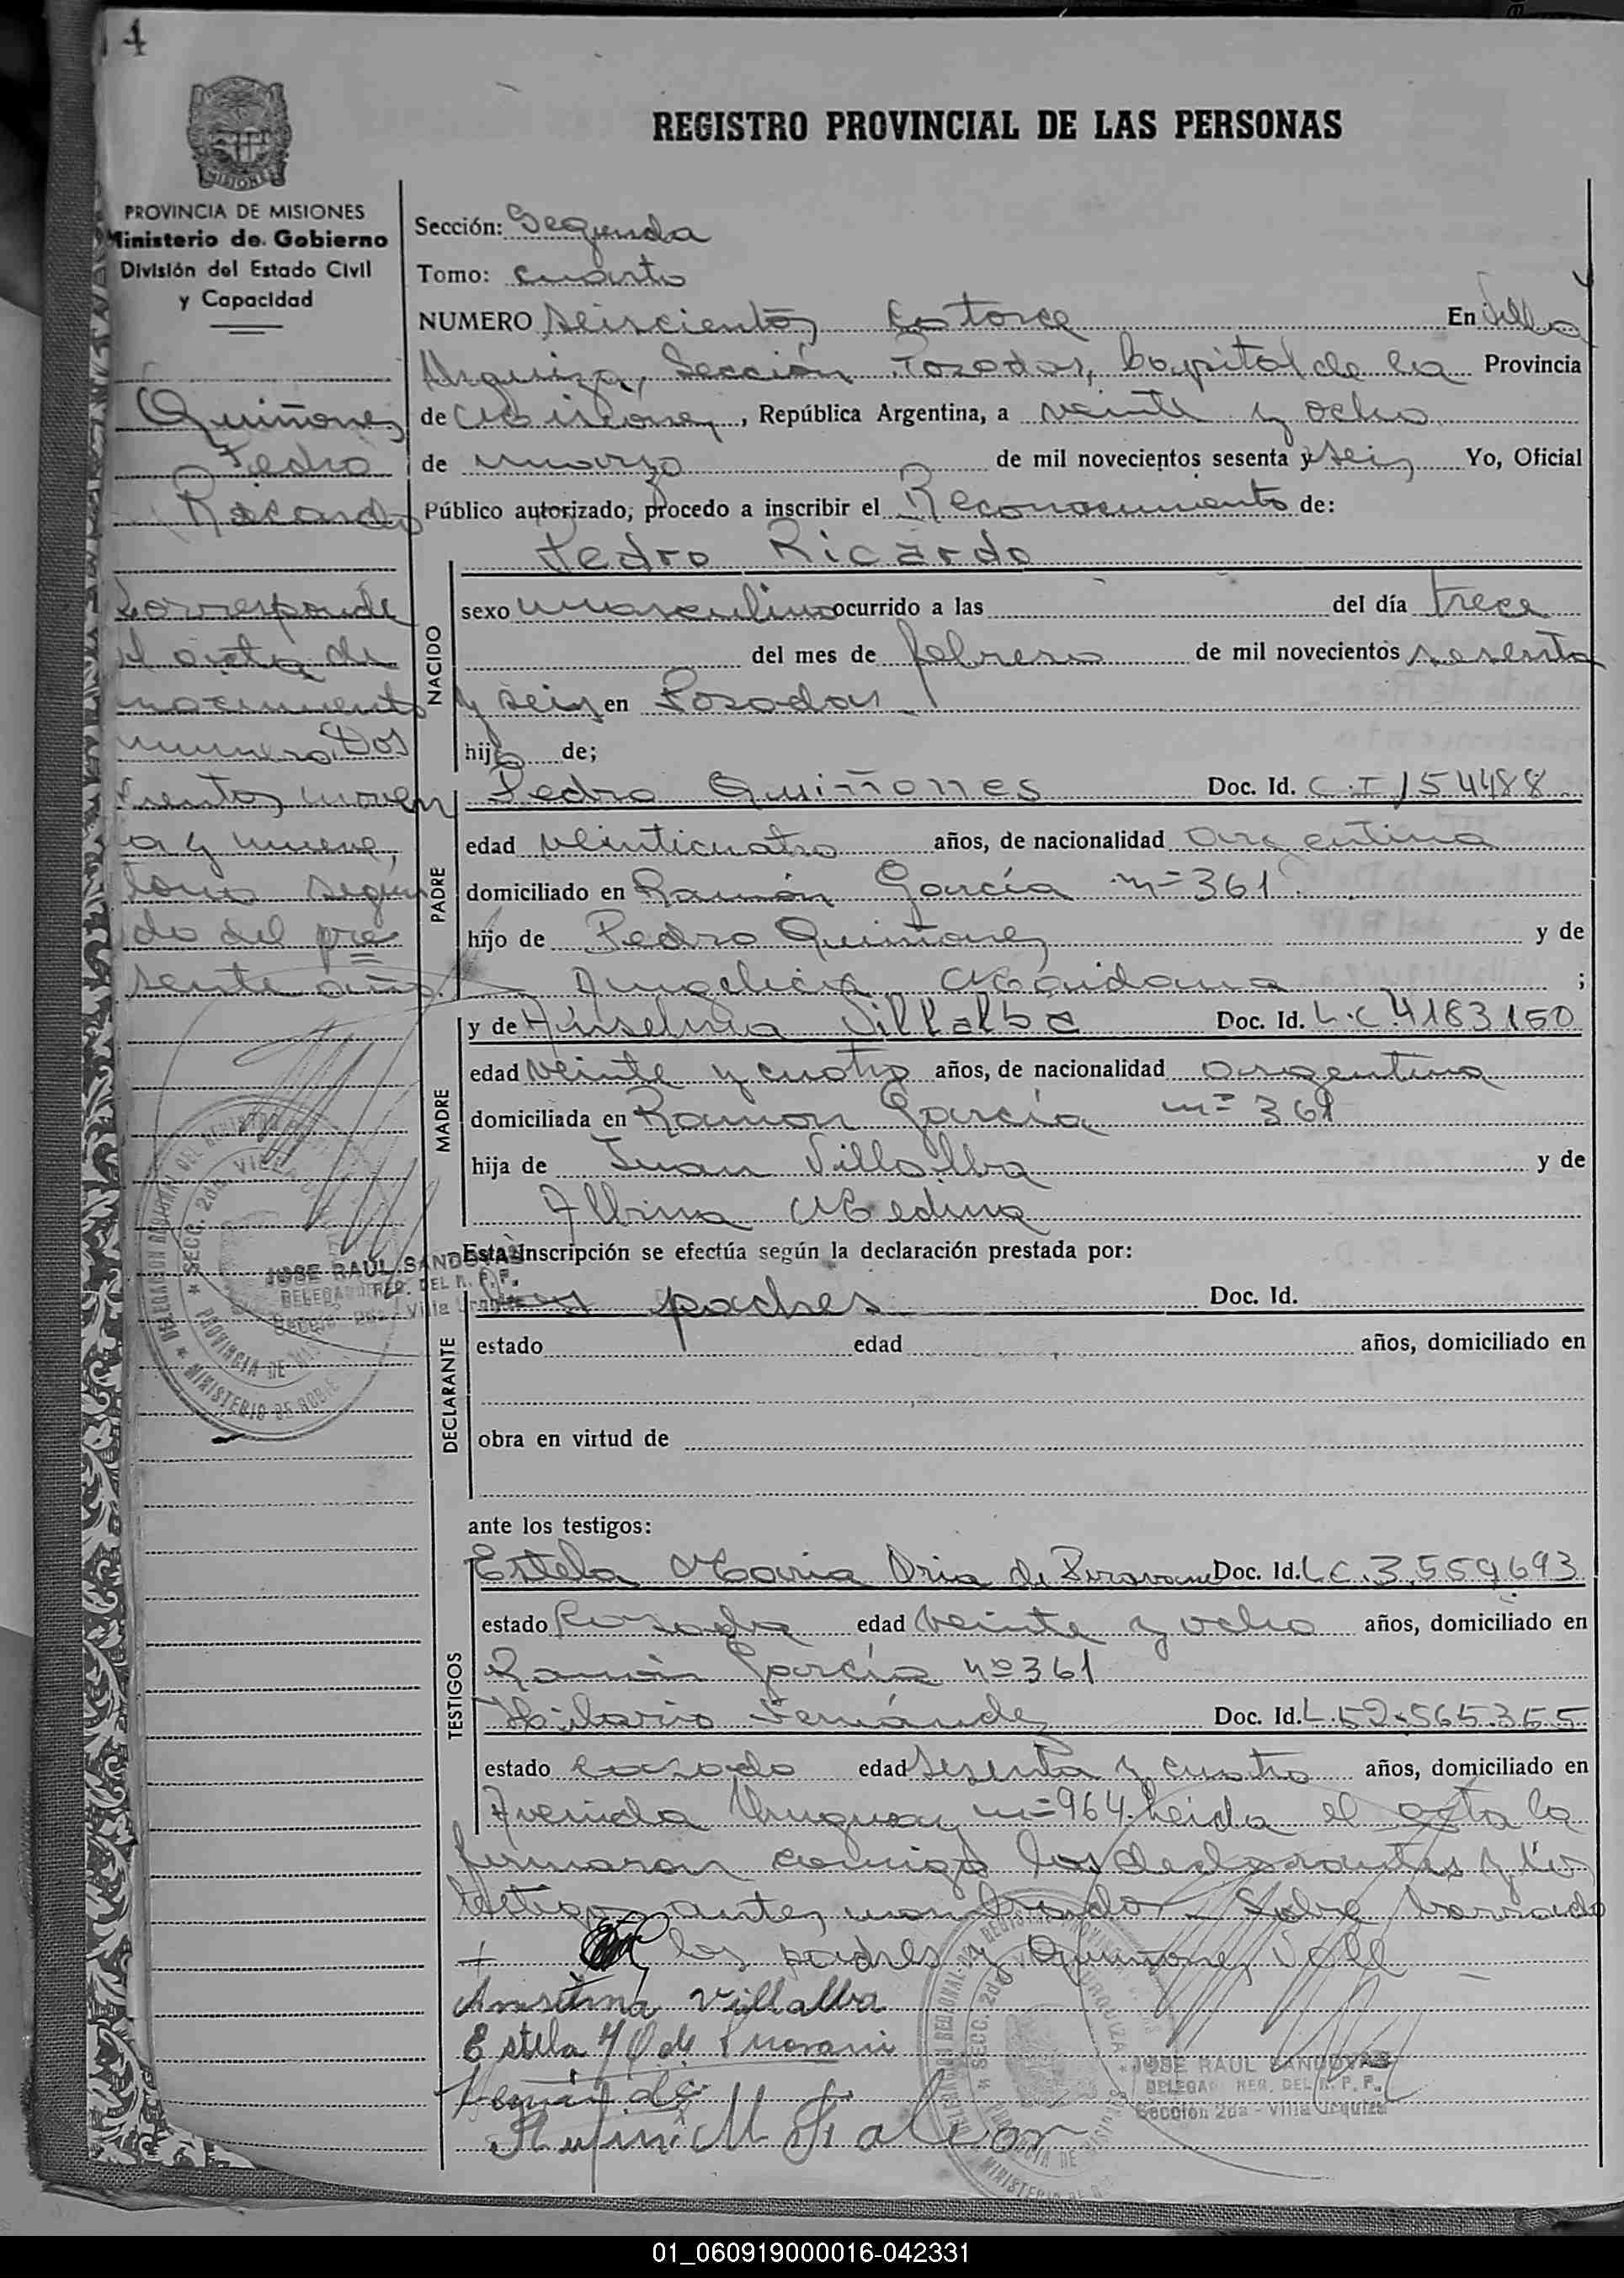 4
REGISTRO PROVINCIAL DE LAS PERSONAS
MISIONES
PROVINCIA DE MISIONES
Ministerio de Gobierno
División del Estado Civil
y Capacidad
Quiñones
Pedro
Ricardo
Corresponde
al acta de
nacimiento
numero Dos
cientos noven
ta y nueve,
tomo segun
do del pre
sente año.
Sección: Segunda
Tomo: cuarto
NUMERO seiscientos catorce En Villa
Urquiza, Sección Posadas, Capital de la Provincia
de Misiones, República Argentina, a veinte y ocho
de marzo de mil novecientos sesenta y seis Yo, Oficial
Público autorizado, procedo a inscribir el Reconocimiento de:
NACIDO
Pedro Ricardo
sexo masculino ocurrido a las del día trece
del mes de febrero de mil novecientos sesenta
y seis en Posadas
hijo de;
PADRE
Pedro Quiñones Doc. Id. C.I 154488
edad veinticuatro años, de nacionalidad argentina
domiciliado en Ramón García nº 361
hijo de Pedro Quiñones y de
Angelica Maidana ;
MADRE
y de Anselma Villalba Doc. Id. L.C. 4183150
edad veinte y cuatro años, de nacionalidad argentina
domiciliada en Ramon García nº 361
hija de Juan Villalba y de
Albina Medina
Esta inscripción se efectúa según la declaración prestada por:
DECLARANTE
los padres Doc. Id.
estado edad años, domiciliado en
obra en virtud de
ante los testigos:
TESTIGOS
Estela Maria Doc. Id. L C. 3.559693
estado Casada edad veinte y ocho años, domiciliado en
Ramón García nº 361
Hilario Fernández Doc. Id. 565.355
estado casado edad sesenta y cuatro años, domiciliado en
Avenida Uruguay nº 964. Leida el acta la
firmaron conmigo los declarantes y los
testigos antes nombrados Sobre borrado
los padres y Quiñones Vale
Anselma Villalba
Estela
JOSE RAUL SANDOVAL
DELEGADO REG. DEL R. P. P.
Sección 2da - Villa Urquiza
JOSE RAUL SANDOVAL
DELEGADO REG. DEL R. P. P.
Sección 2da - Villa Urquiza
01_060919000016-042331